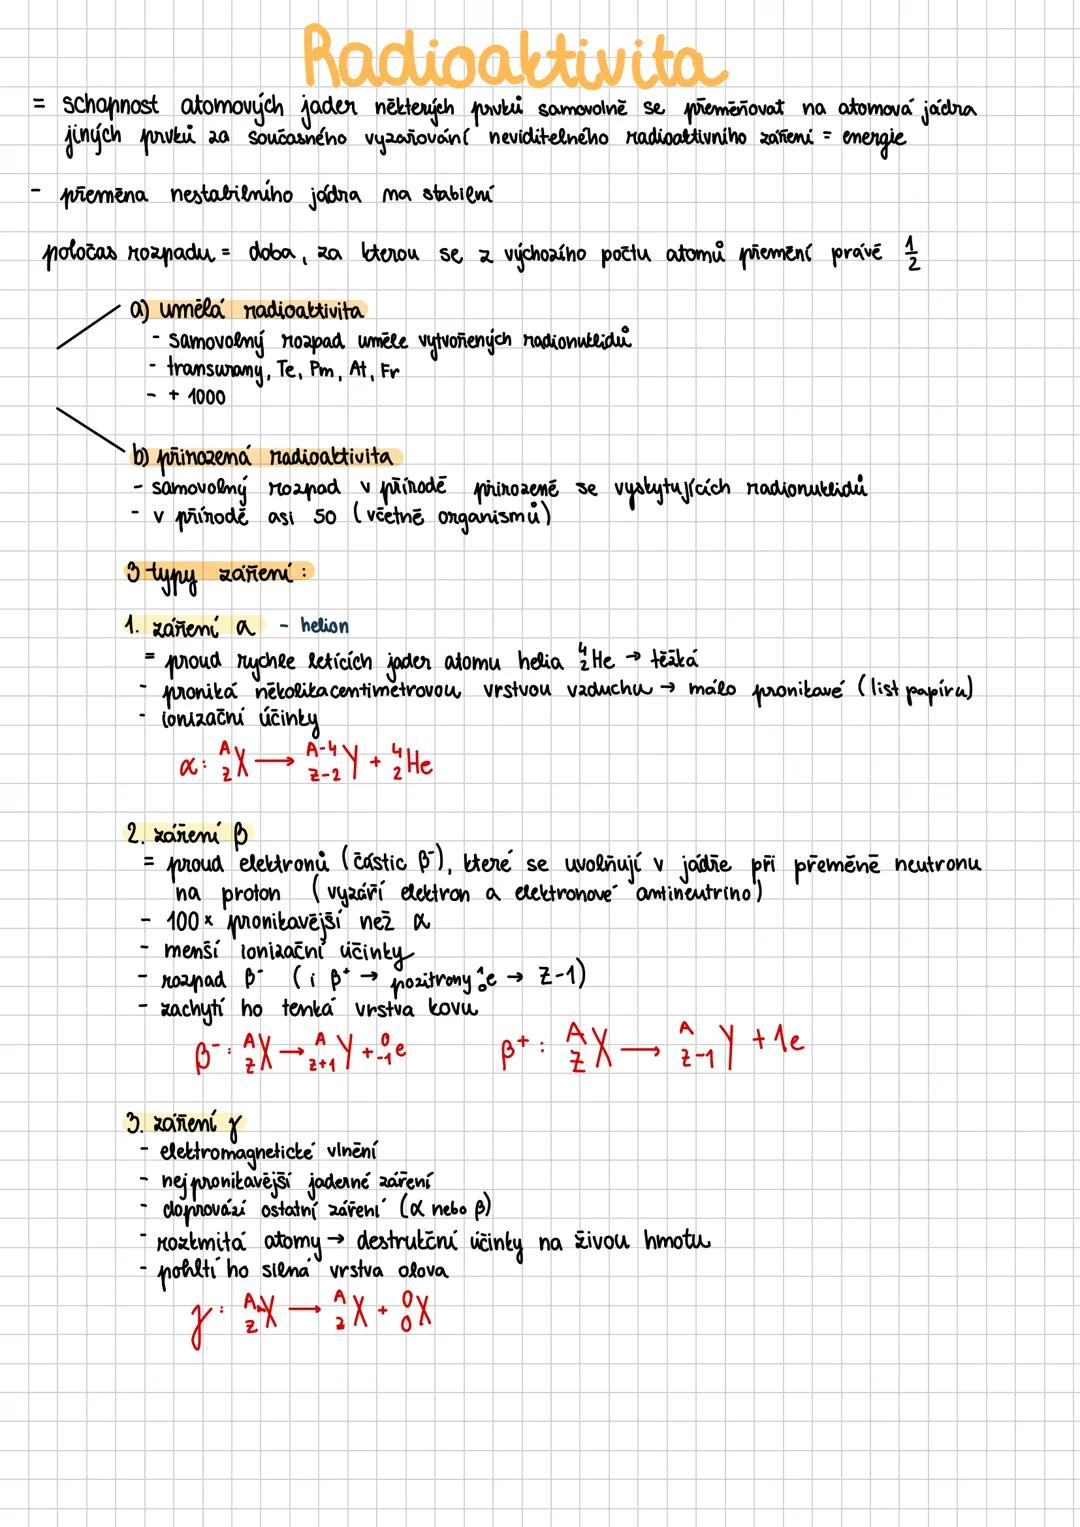 Radioaktivita
= schopnost atomových jader některých prvků samovolně se přeměňovat na atomová jádra
jiných prvků za současného vyzařování neviditelného radioaktivního záření = energie
- přeměna nestabilního jádra na stabilní
poločas rozpadu = doba, za kterou se z výchozího počtu atomů přemění právě 1/2
a) umělá radioaktivita
- samovolný rozpad uměle vytvořených radionuklidů
- transurany, Te, Pm, At, Fr
- + 1000
b) přirozená radioaktivita
- samovolný rozpad v přírodě přirozeně se vyskytujících radionuklidů
- v přírodě asi 50 (včetně organismů)
3 typy záření:
1. záření α - helion
= proud rychle letících jader atomu helia ⁴₂He → těžká
- proniká několikacentimetrovou vrstvou vzduchu → málo pronikavé (list papíru)
- ionizační účinky
α: ᴬ_Z X → ᴬ⁻⁴_Z-2 Y + ⁴₂He
2. záření β
= proud elektronů (částic β⁻), které se uvolňují v jádře při přeměně neutronu
na proton (vyzáří elektron a elektronové antineutrino)
- 100× pronikavější než α
- menší ionizační účinky
- rozpad β⁻ (i β⁺ → pozitrony ¹₀e → Z-1)
- zachytí ho tenká vrstva kovu
β⁻: ᴬ_Z X → ᴬ_Z+1 Y + ⁰₋₁e β⁺: ᴬ_Z X → ᴬ_Z-1 Y + 1e
3. záření γ
- elektromagnetické vlnění
- nejpronikavější jaderné záření
- doprovází ostatní záření (α nebo β)
- rozkmitá atomy → destrukční účinky na živou hmotu
- pohltí ho silná vrstva olova
γ: ᴬ_Z X → ᴬ_Z X + ⁰₀X